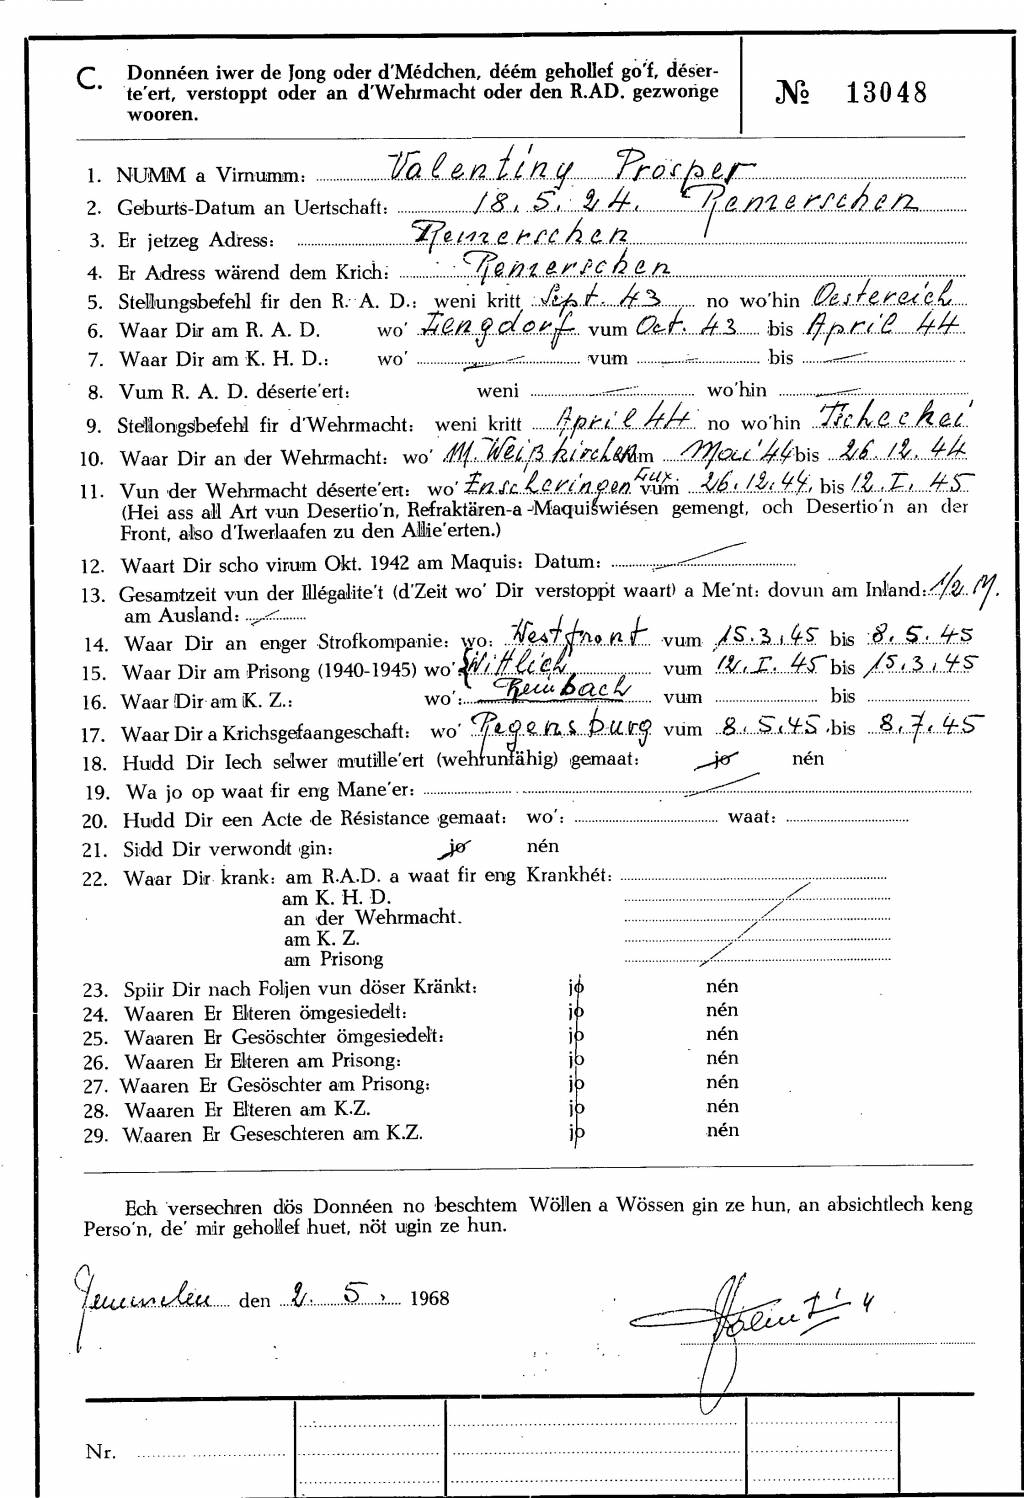 C. Donnéen iwer de Jong oder d'Médchen, déém gehollef go'f, déser-
te'ert, verstoppt oder an d'Wehrmacht oder den R.AD. gezwonge
wooren.
№ 13048
1. NUMM a Virnumm: Valentiny Prosper
2. Geburts-Datum an Uertschaft: 18.5.24. Remerschen
3. Er jetzeg Adress: Remerschen
4. Er Adress wärend dem Krich: Remerschen
5. Stellungsbefehl fir den R. A. D.: weni kritt Sept. 43 no wo'hin Oestereich
6. Waar Dir am R. A. D. wo' Zengdorf vum Oct. 43 bis April 44
7. Waar Dir am K. H. D.: wo' — vum — bis —
8. Vum R. A. D. déserte'ert: weni — wo'hin —
9. Stellongsbefehl fir d'Wehrmacht: weni kritt April 44 no wo'hin Tschechei
10. Waar Dir an der Wehrmacht: wo' M. Weißkirchen vum Mai 44 bis 26.12.44
11. Vun der Wehrmacht déserte'ert: wo' Enscheringen Lux vum 26.12.44. bis 12.I.45
(Hei ass all Art vun Desertio'n, Refraktären-a -Maquiswiésen gemengt, och Desertio'n an der
Front, also d'Iwerlaafen zu den Allie'erten.)
12. Waart Dir scho virum Okt. 1942 am Maquis: Datum: —
13. Gesamtzeit vun der Illégalite't (d'Zeit wo' Dir verstoppt waart) a Me'nt: dovun am Inland: 1/2 M.
am Ausland: —
14. Waar Dir an enger Strofkompanie: wo: Westfront vum 15.3.45 bis 8.5.45
15. Waar Dir am Prisong (1940-1945) wo' Wittlich vum 12.I.45 bis 15.3.45
Reinbach
16. Waar Dir am K. Z.: wo': vum bis
17. Waar Dir a Krichsgefaangeschaft: wo' Regensburg vum 8.5.45 bis 8.7.45
18. Hudd Dir Iech selwer mutille'ert (wehrunfähig) gemaat: jo nén
19. Wa jo op waat fir eng Mane'er:
20. Hudd Dir een Acte de Résistance gemaat: wo': waat:
21. Sidd Dir verwondt gin: jo nén
22. Waar Dir krank: am R.A.D. a waat fir eng Krankhét:
am K. H. D.
an der Wehrmacht.
am K. Z.
am Prisong
23. Spiir Dir nach Foljen vun döser Kränkt: jo nén
24. Waaren Er Elteren ömgesiedelt: jo nén
25. Waaren Er Gesöschter ömgesiedelt: jo nén
26. Waaren Er Elteren am Prisong: jo nén
27. Waaren Er Gesöschter am Prisong: jo nén
28. Waaren Er Elteren am K.Z. jo nén
29. Waaren Er Geseschteren am K.Z. jo nén
Ech versechren dös Donnéen no beschtem Wöllen a Wössen gin ze hun, an absichtlech keng
Perso'n, de' mir gehollef huet, nöt ugin ze hun.
den 2. 5. 1968
Nr.